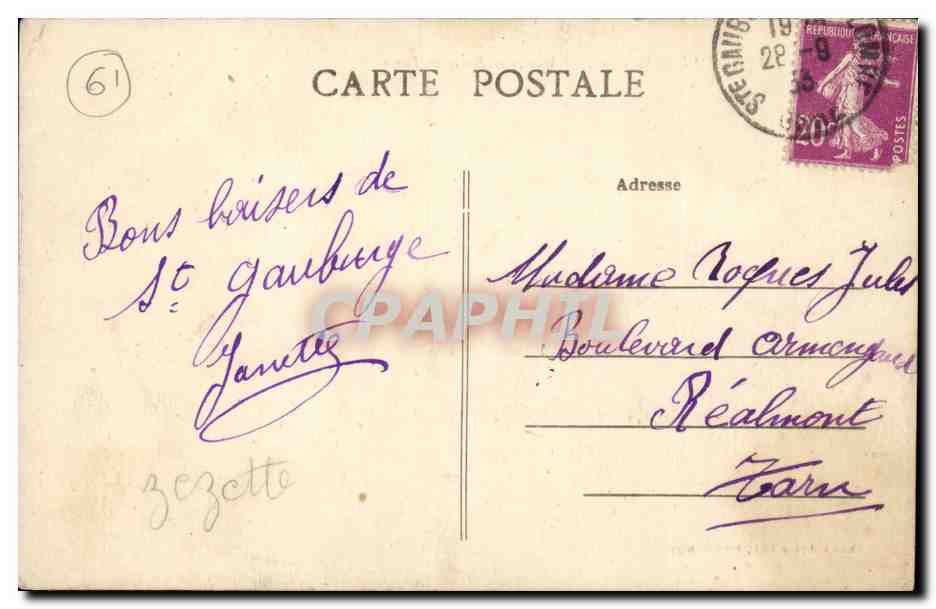 61
CARTE POSTALE
REPUBLIQUE FRANCAISE
28 -9
20c
POSTES
Adresse
Bons baisers de
St. Gauburge
Janette
zezette
Madame Roques Jules
Boulevard Armengaud
Réalmont
Tarn
CPAPHIL